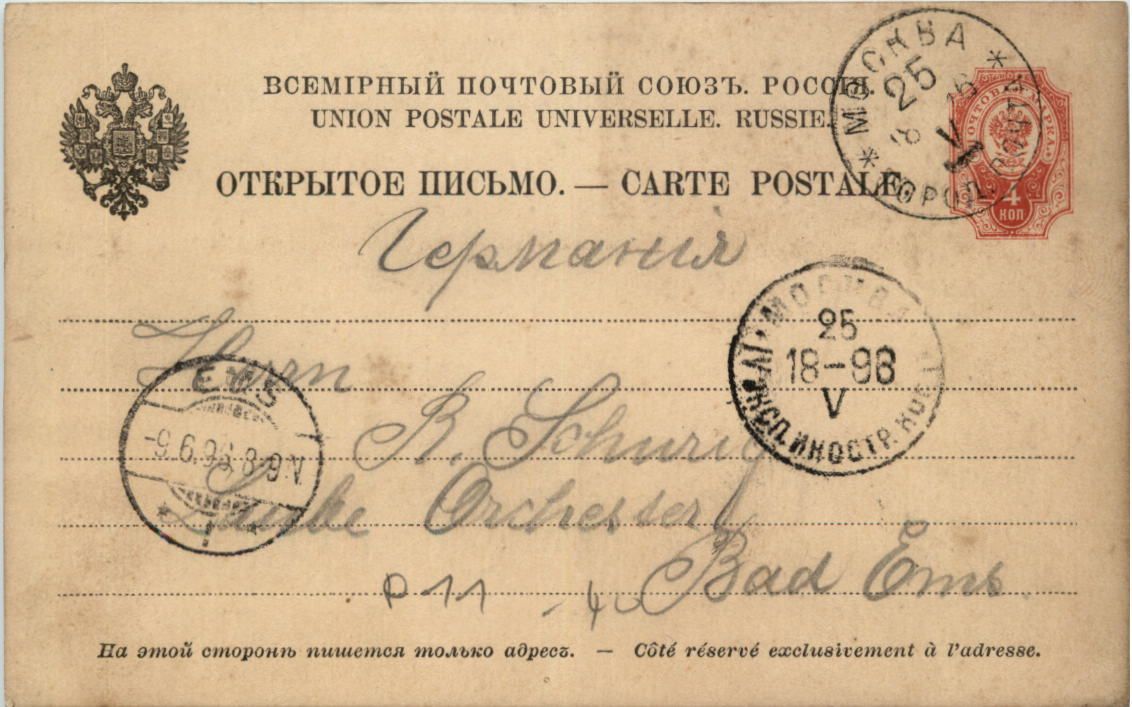 ВСЕМІРНЫЙ ПОЧТОВЫЙ СОЮЗЪ. РОССІЯ.
UNION POSTALE UNIVERSELLE. RUSSIE.
ОТКРЫТОЕ ПИСЬМО. — CARTE POSTALE.
МОСКВА
25
V
ПОЧТОВАЯ МАРКА
4
КОП
Германія
МОСКВА
25
18-98
V
ЭКСП. ИНОСТР. КОР
Herrn
EMS
R. Schurig
9.6.96. 8-9 N.
Laube Orchester
1
Bad Ems.
P 11 -40
На этой сторонѣ пишется только адресъ. — Côté réservé exclusivement à l'adresse.